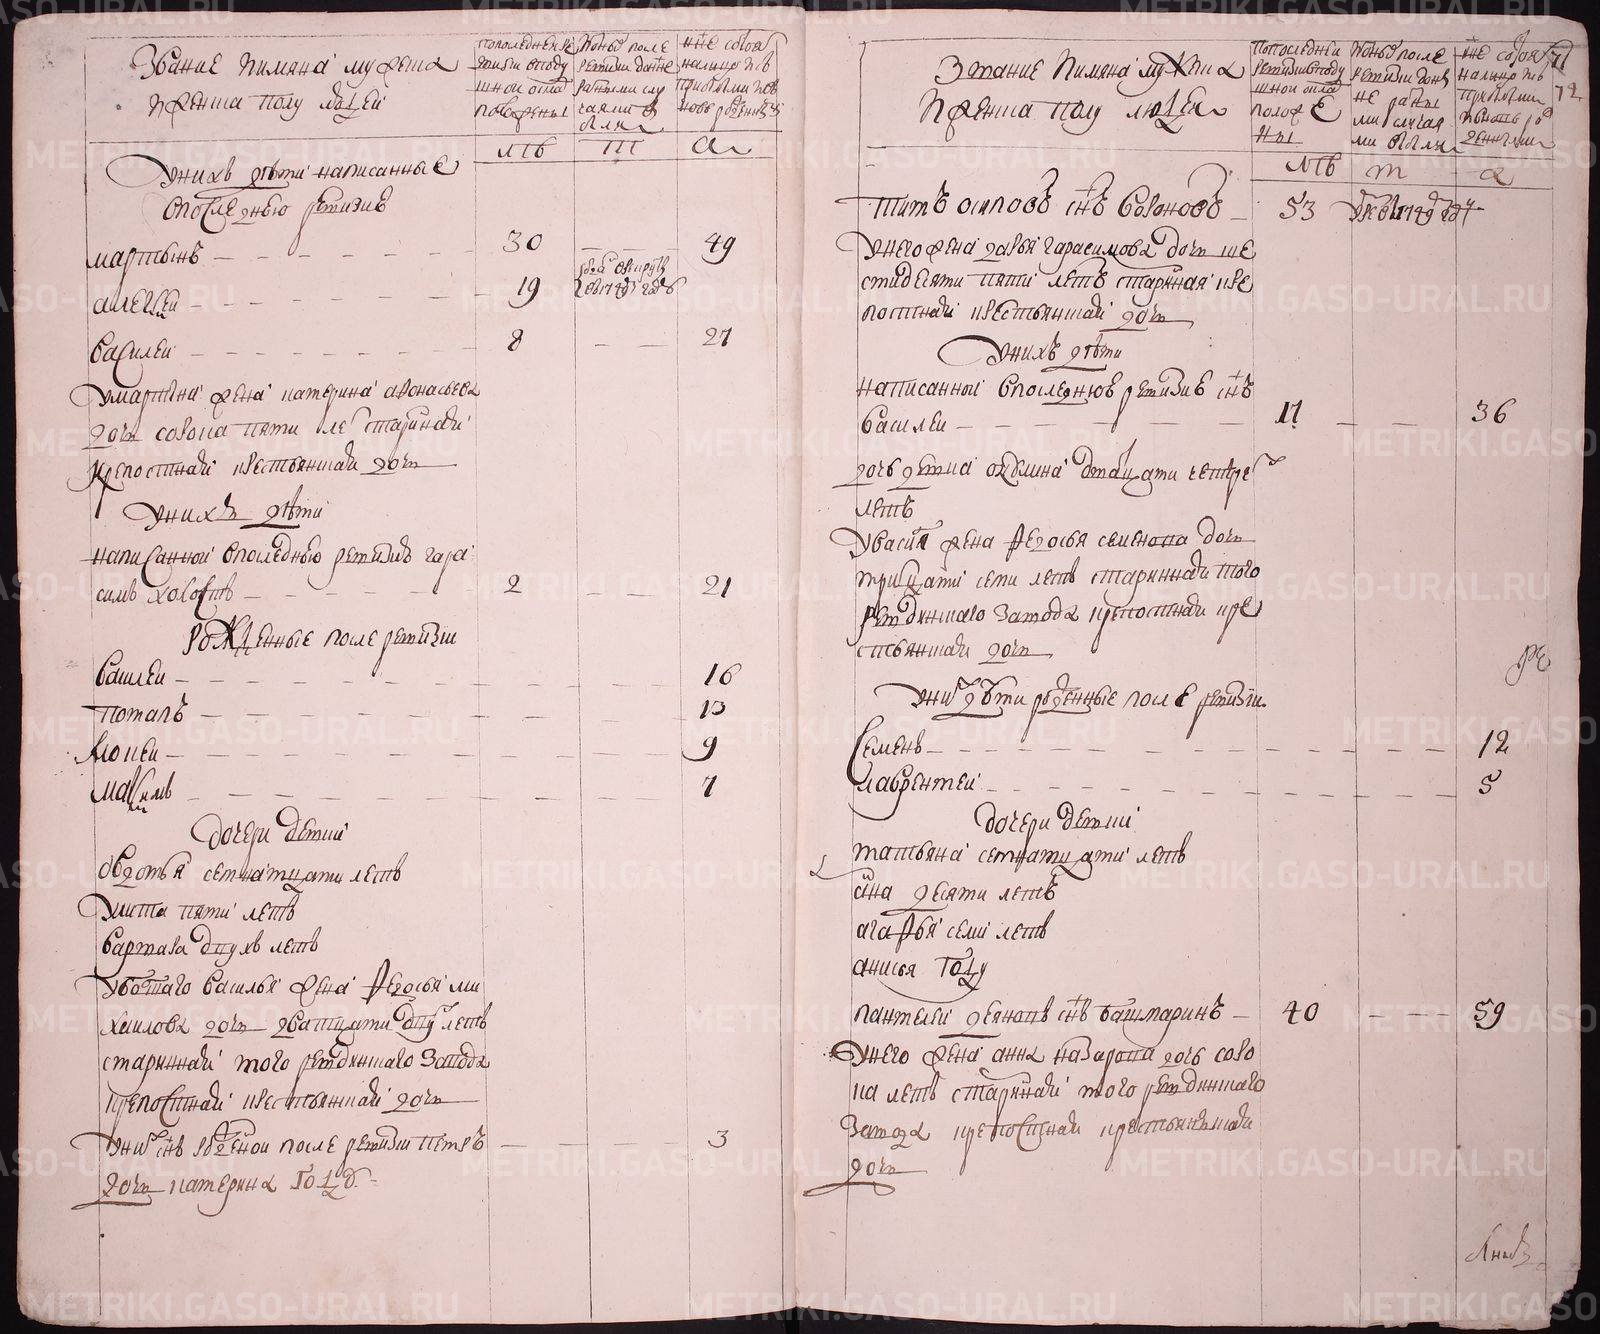 Звание имяна мужеска
и женска полу людей
по последней ре
визии в поду
шной окла
положены
из оного после
ревизии до ны не
разными слу
чаями
убыли
ныне состоят
налицо и с
прибылыми и с
новорожденными
лѣ
т
У них дѣти написанные
в последнею ревизию
мартынъ 30 49
алексеи 19
василеи 8 27
У мартына жена катерина афонасьева
дочь сорока пяти летъ стариннаи
крепостнаи крестьянскаи дочь
У них дѣти
написанной в последнею ревизию гара
симъ холостъ 2 21
рожденные после ревизии
василеи 16
потапъ 13
мокеи 9
максимъ 7
дочери девки
овдотья семнатцати летъ
улита пяти летъ
варвара двухъ летъ
У вотчаго василья жена федосья ми
хаилова дочь дватцати двухъ летъ
стариннаи того ревдинскаго завода
крепостнаи крестьянскаи дочь
У них снъ рожденои после ревизии петръ 3
дочь катерина году
Звание имяна мужска
и женска полу людеи
по последнеи
ревизии в поду
шнои окла
положе
ны
из оного после
ревизии до ны
не разны
ми случая
ми убыли
ныне состоят
налицо и с
прибылыми
и вновь ро
жденными
71
72
лѣ
т
титъ осиповъ снъ 53 умре въ 1749 году
У него жена дарья гарасимова дочь ше
стидесяти пяти летъ старинная кре
постнаи крестьянскаи дочь
У нихъ дѣти
написаннои в последнюю ревизию снъ
василеи 17 36
дочь девка акулина дватцати четыре
летъ
У василья жена федосья семенова дочь
тритцати семи летъ стариннаи того
ревдинскаго завода крепостнаи кре
стьянскаи дочь
У них дѣти рожденные после ревизии
семенъ 12
лаврентеи 5
дочери девки
татьяна семнатцати летъ
анна десяти летъ
агафья семи летъ
анисья году
пантелеи деяновъ снъ башмаринъ 40 59
У него жена анна назарова дочь соро
ка летъ стариннаи того ревдинскаго
завода крепостнаи крестьянскаи
дочь
METRIKI.GASO-URAL.RU